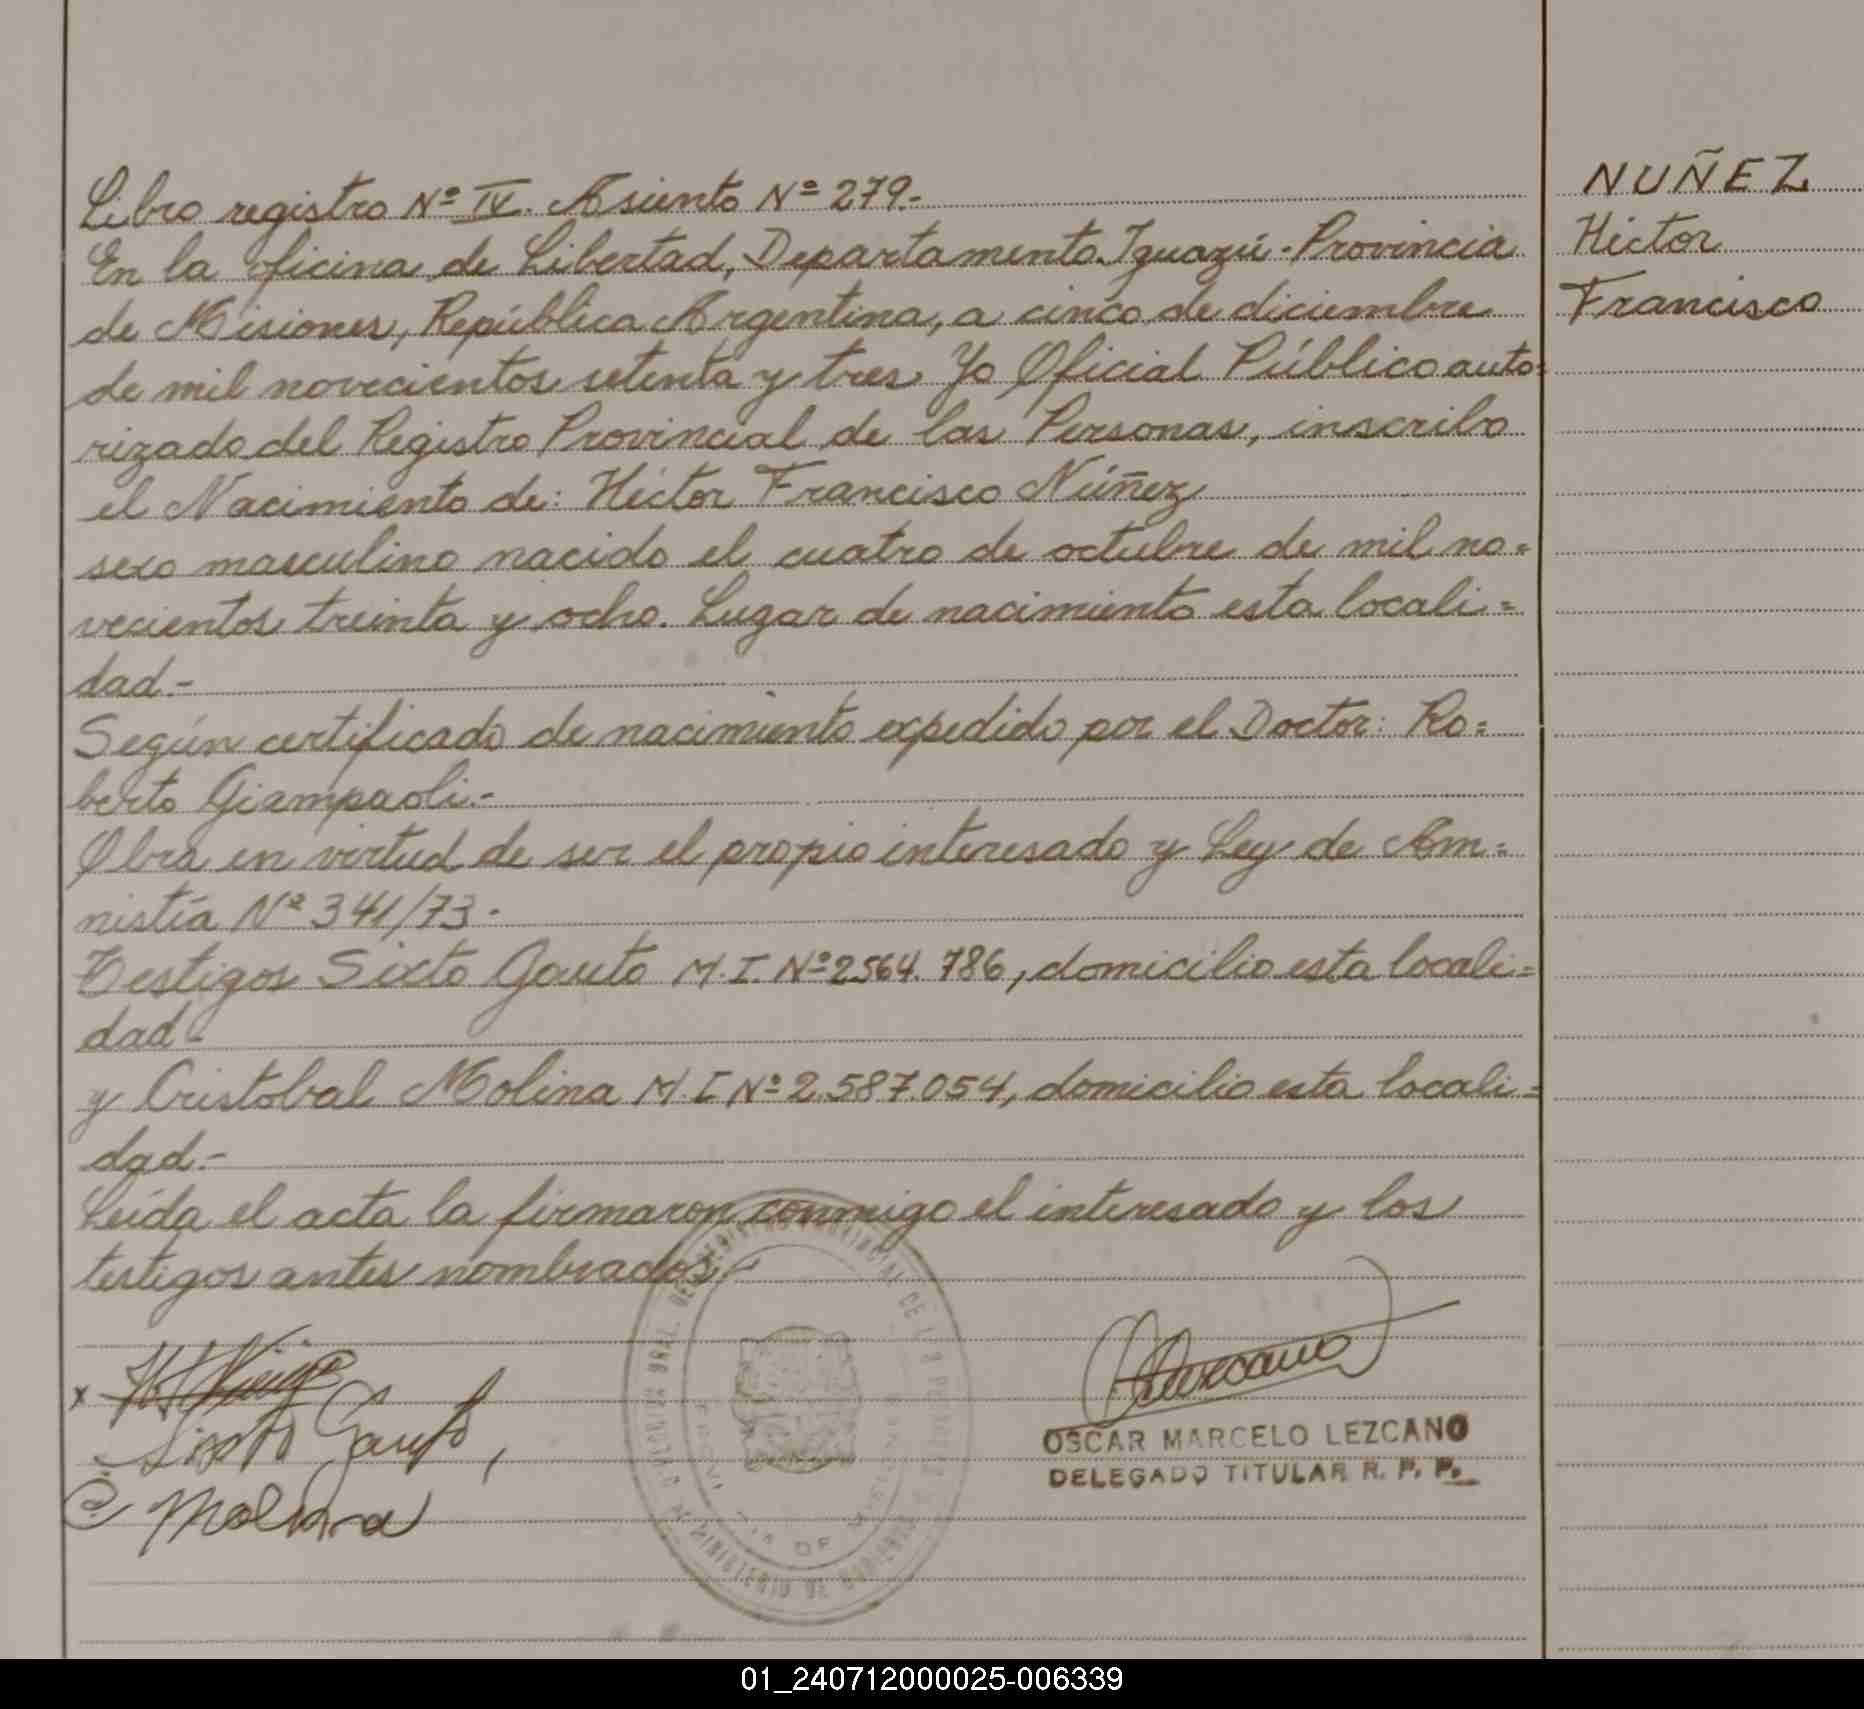 Libro registro Nº IV. Asiento Nº 279.-
En la oficina de Libertad, Departamento Iguazú - Provincia
de Misiones, República Argentina, a cinco de diciembre
de mil novecientos setenta y tres Yo Oficial Público auto=
rizado del Registro Provincial de las Personas, inscribo
el Nacimiento de: Héctor Francisco Núñez
sexo masculino nacido el cuatro de octubre de mil no=
vecientos treinta y ocho. Lugar de nacimiento esta locali=
dad.-
Según certificado de nacimiento expedido por el Doctor: Ro=
berto Giampaoli.-
Obra en virtud de ser el propio interesado y Ley de Am=
nistía Nº 341/73.-
Testigos Sixto Gauto M.I. Nº 2564.786, domicilio esta locali=
dad.-
y Cristobal Molina M.I Nº 2.587.054, domicilio esta locali=
dad.-
Leída el acta la firmaron conmigo el interesado y los
testigos antes nombrados.-
x
Sixto Gauto,
C Molina
Lezcano
OSCAR MARCELO LEZCANO
DELEGADO TITULAR R. P. P.
MINISTERIO DE GOBIERNO
NUÑEZ
Héctor
Francisco
01_240712000025-006339